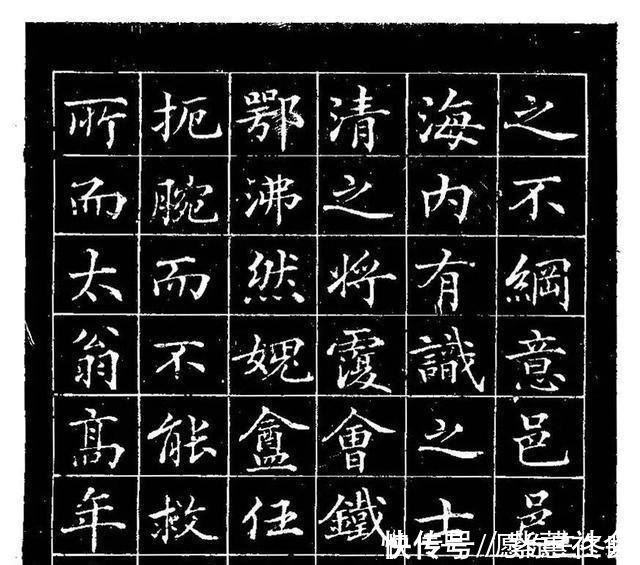 之不綱意邑邑
海内有識之士
清之将覆會鐵
鄂沸然媿盦任
扼腕而不能救
所而太翁髙年
快传号//